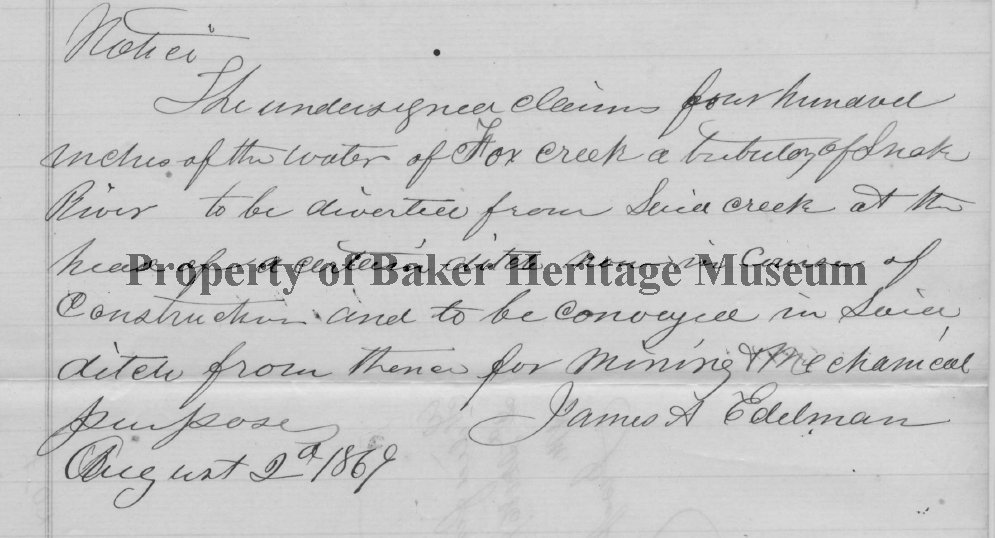 Notice
The undersigned claims four hundred
inches of the water of Fox creek a tributary of Snake
River to be diverted from Said creek at the
head of a certain ditch now in Course of
Property of Baker Heritage Museum
Construction and to be conveyed in Said
ditch from thence for mining & Mechanical
purposes James A Edelman
August 2d 1869